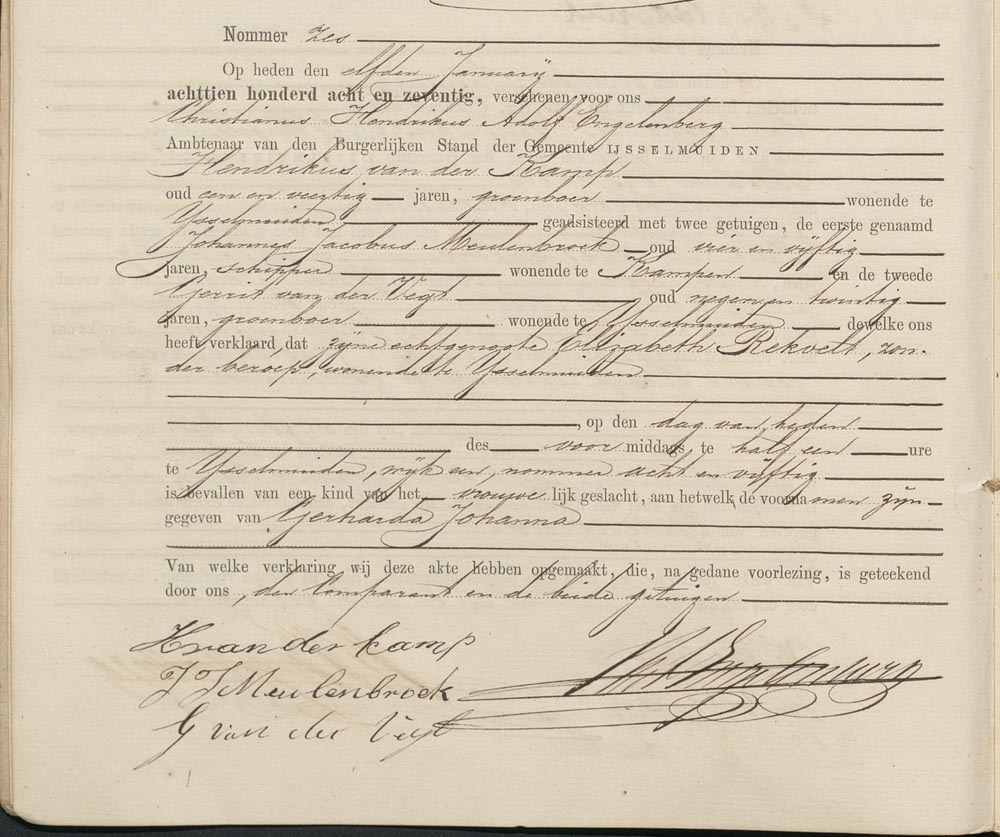 Nommer zes
Op heden den elfden Januarij
achttien honderd acht en zeventig, verschenen voor ons
Christianus Hendrikus Adolf Engelenberg
Ambtenaar van den Burgerlijken Stand der Gemeente IJSSELMUIDEN
Hendrikus van der Kamp
oud een en veertig jaren, groenboer wonende te
IJsselmuiden geadsisteerd met twee getuigen, de eerste genaamd
Johannes Jacobus Meulenbroek oud vier en vijftig
jaren, schipper wonende te Kampen en de tweede
Gerrit van der Vegt oud negen en twintig
jaren, groenboer wonende te IJsselmuiden dewelke ons
heeft verklaard, dat zijne echtgenoote Elizabeth Rekvelt, zon-
der beroep, wonende te IJsselmuiden
, op den dag van heden
des voor middags te half een ure
te IJsselmuiden, wijk een, nommer acht en vijftig
is bevallen van een kind van het vrouwe lijk geslacht, aan hetwelk de voornamen zijn
gegeven van Gerharda Johanna
Van welke verklaring wij deze akte hebben opgemaakt, die, na gedane voorlezing, is geteekend
door ons, den Comparant en de beide getuigen
H van der kamp
J J Meulenbroek
G van der Vegt
Engelenberg